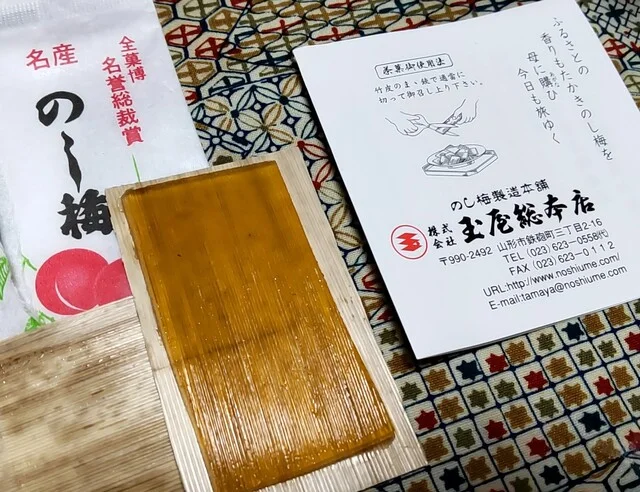 名産
全菓博
名誉総裁賞
のし梅
ふるさとの
香りもたかきのし梅を
母に購ひ
今日も旅ゆく
茶菓御使用法
竹皮のまゝ鋏で適宜に
切って御召し上り下さい。
のし梅製造本舗
玉
株式会社 玉屋総本店
〒990-2492 山形市鉄砲町三丁目2-16
TEL (023)623-0558㈹
FAX (023)623-0112
URL:http://www.noshiume.com/
E-mail:tamaya@noshiume.com